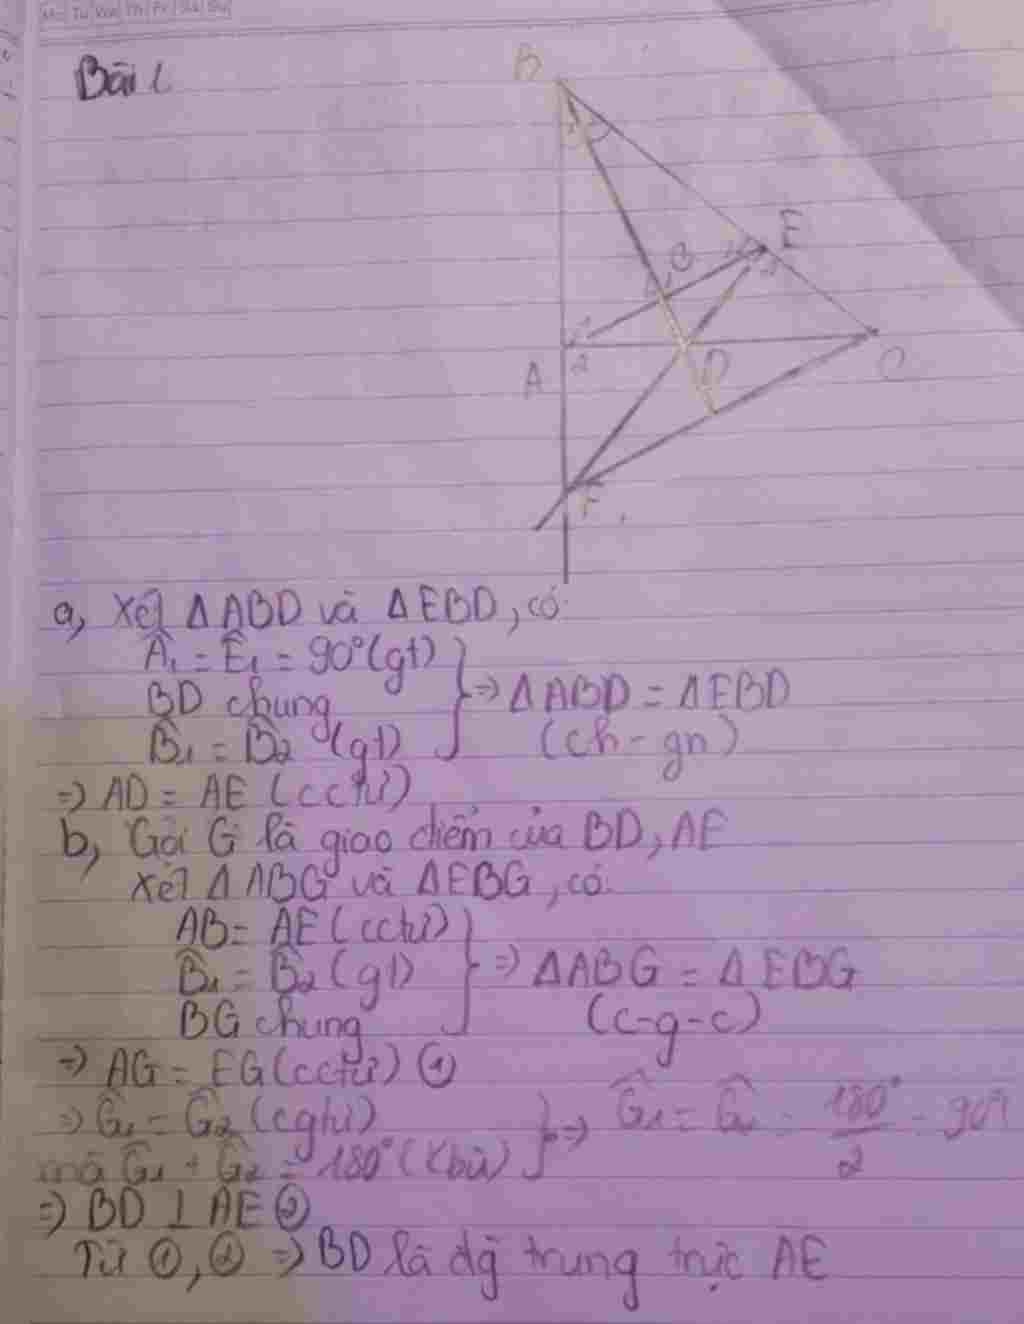 Bài 1
B
E
G
A
2
D
C
F
a, Xét ΔABD và ΔEBD, có:
Â₁ = Ê₁ = 90°(gt)
BD chung
B̂₁ = B̂₂ (gt)
⇒ ΔABD = ΔEBD
(ch - gn)
⇒ AD = AE (cctư)
b, Gọi G là giao điểm của BD, AE
Xét ΔABG và ΔEBG, có:
AB = AE (cctư)
B̂₁ = B̂₂ (gt)
BG chung
⇒ ΔABG = ΔEBG
(c-g-c)
⇒ AG = EG (cctư) ①
⇒ Ĝ₁ = Ĝ₂ (cgtư)
mà Ĝ₁ + Ĝ₂ = 180° (Kbù)
⇒ Ĝ₁ = Ĝ₂ = 180°/2 = 90°
⇒ BD ⊥ AE ②
Từ ①, ② ⇒ BD là đg trung trực AE